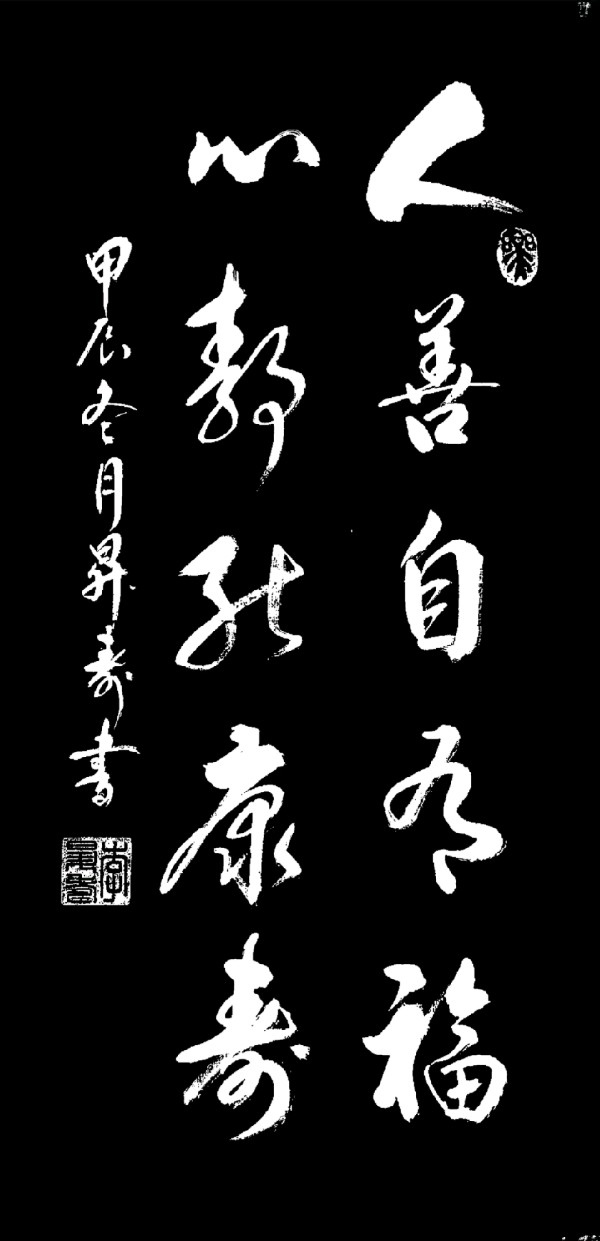 人善自有福
心静能康寿
甲辰冬月昇寿书